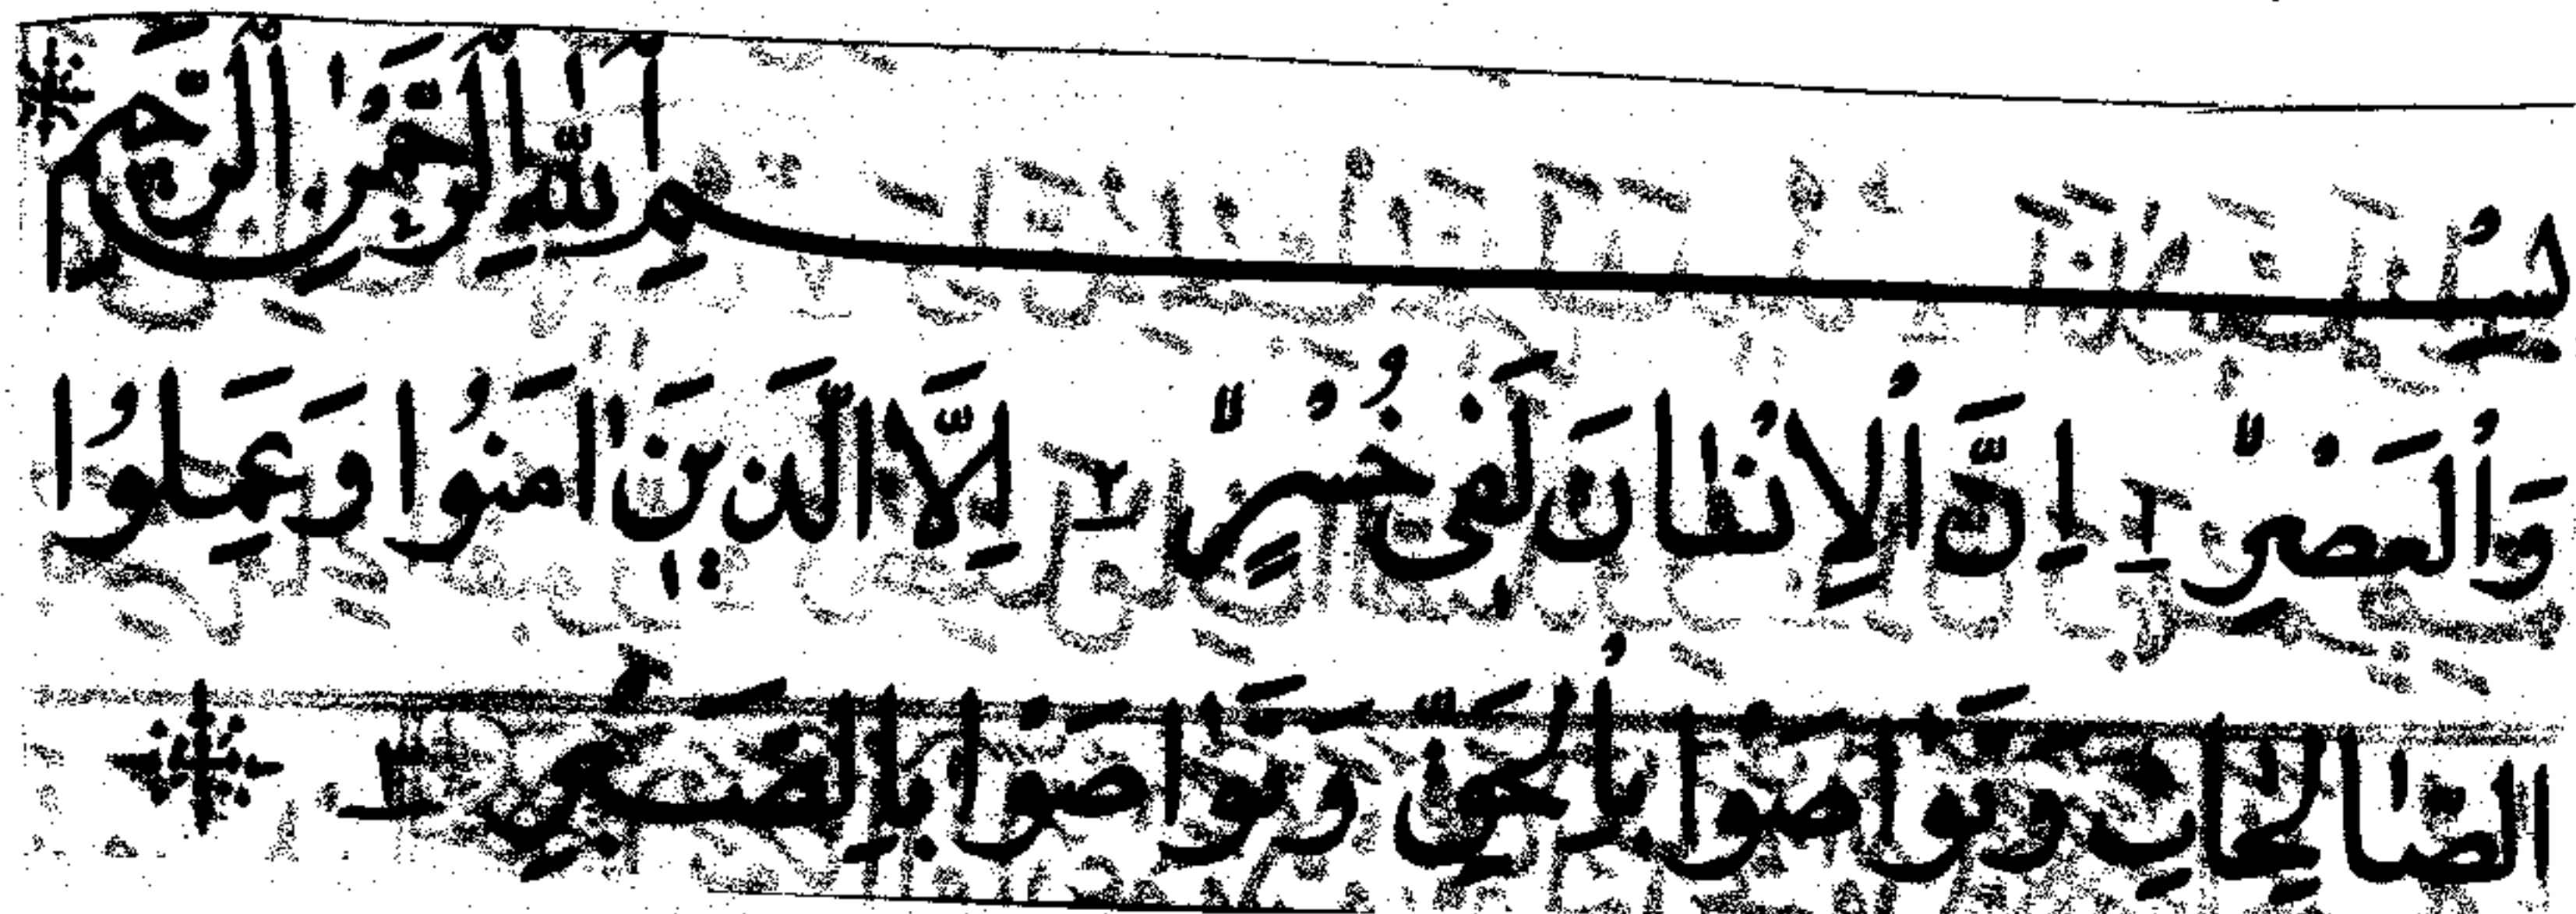 بِسْمِ اللّٰهِ الرَّحْمٰنِ الرَّحِيْمِ
وَالْعَصْرِ ١ اِنَّ الْاِنْسَانَ لَفِىْ خُسْرٍ ٢ اِلَّا الَّذِيْنَ اٰمَنُوْا وَعَمِلُوا
الصَّالِحَاتِ وَتَوَاصَوْا بِالْحَقِّ وَتَوَاصَوْا بِالصَّبْرِ ٣